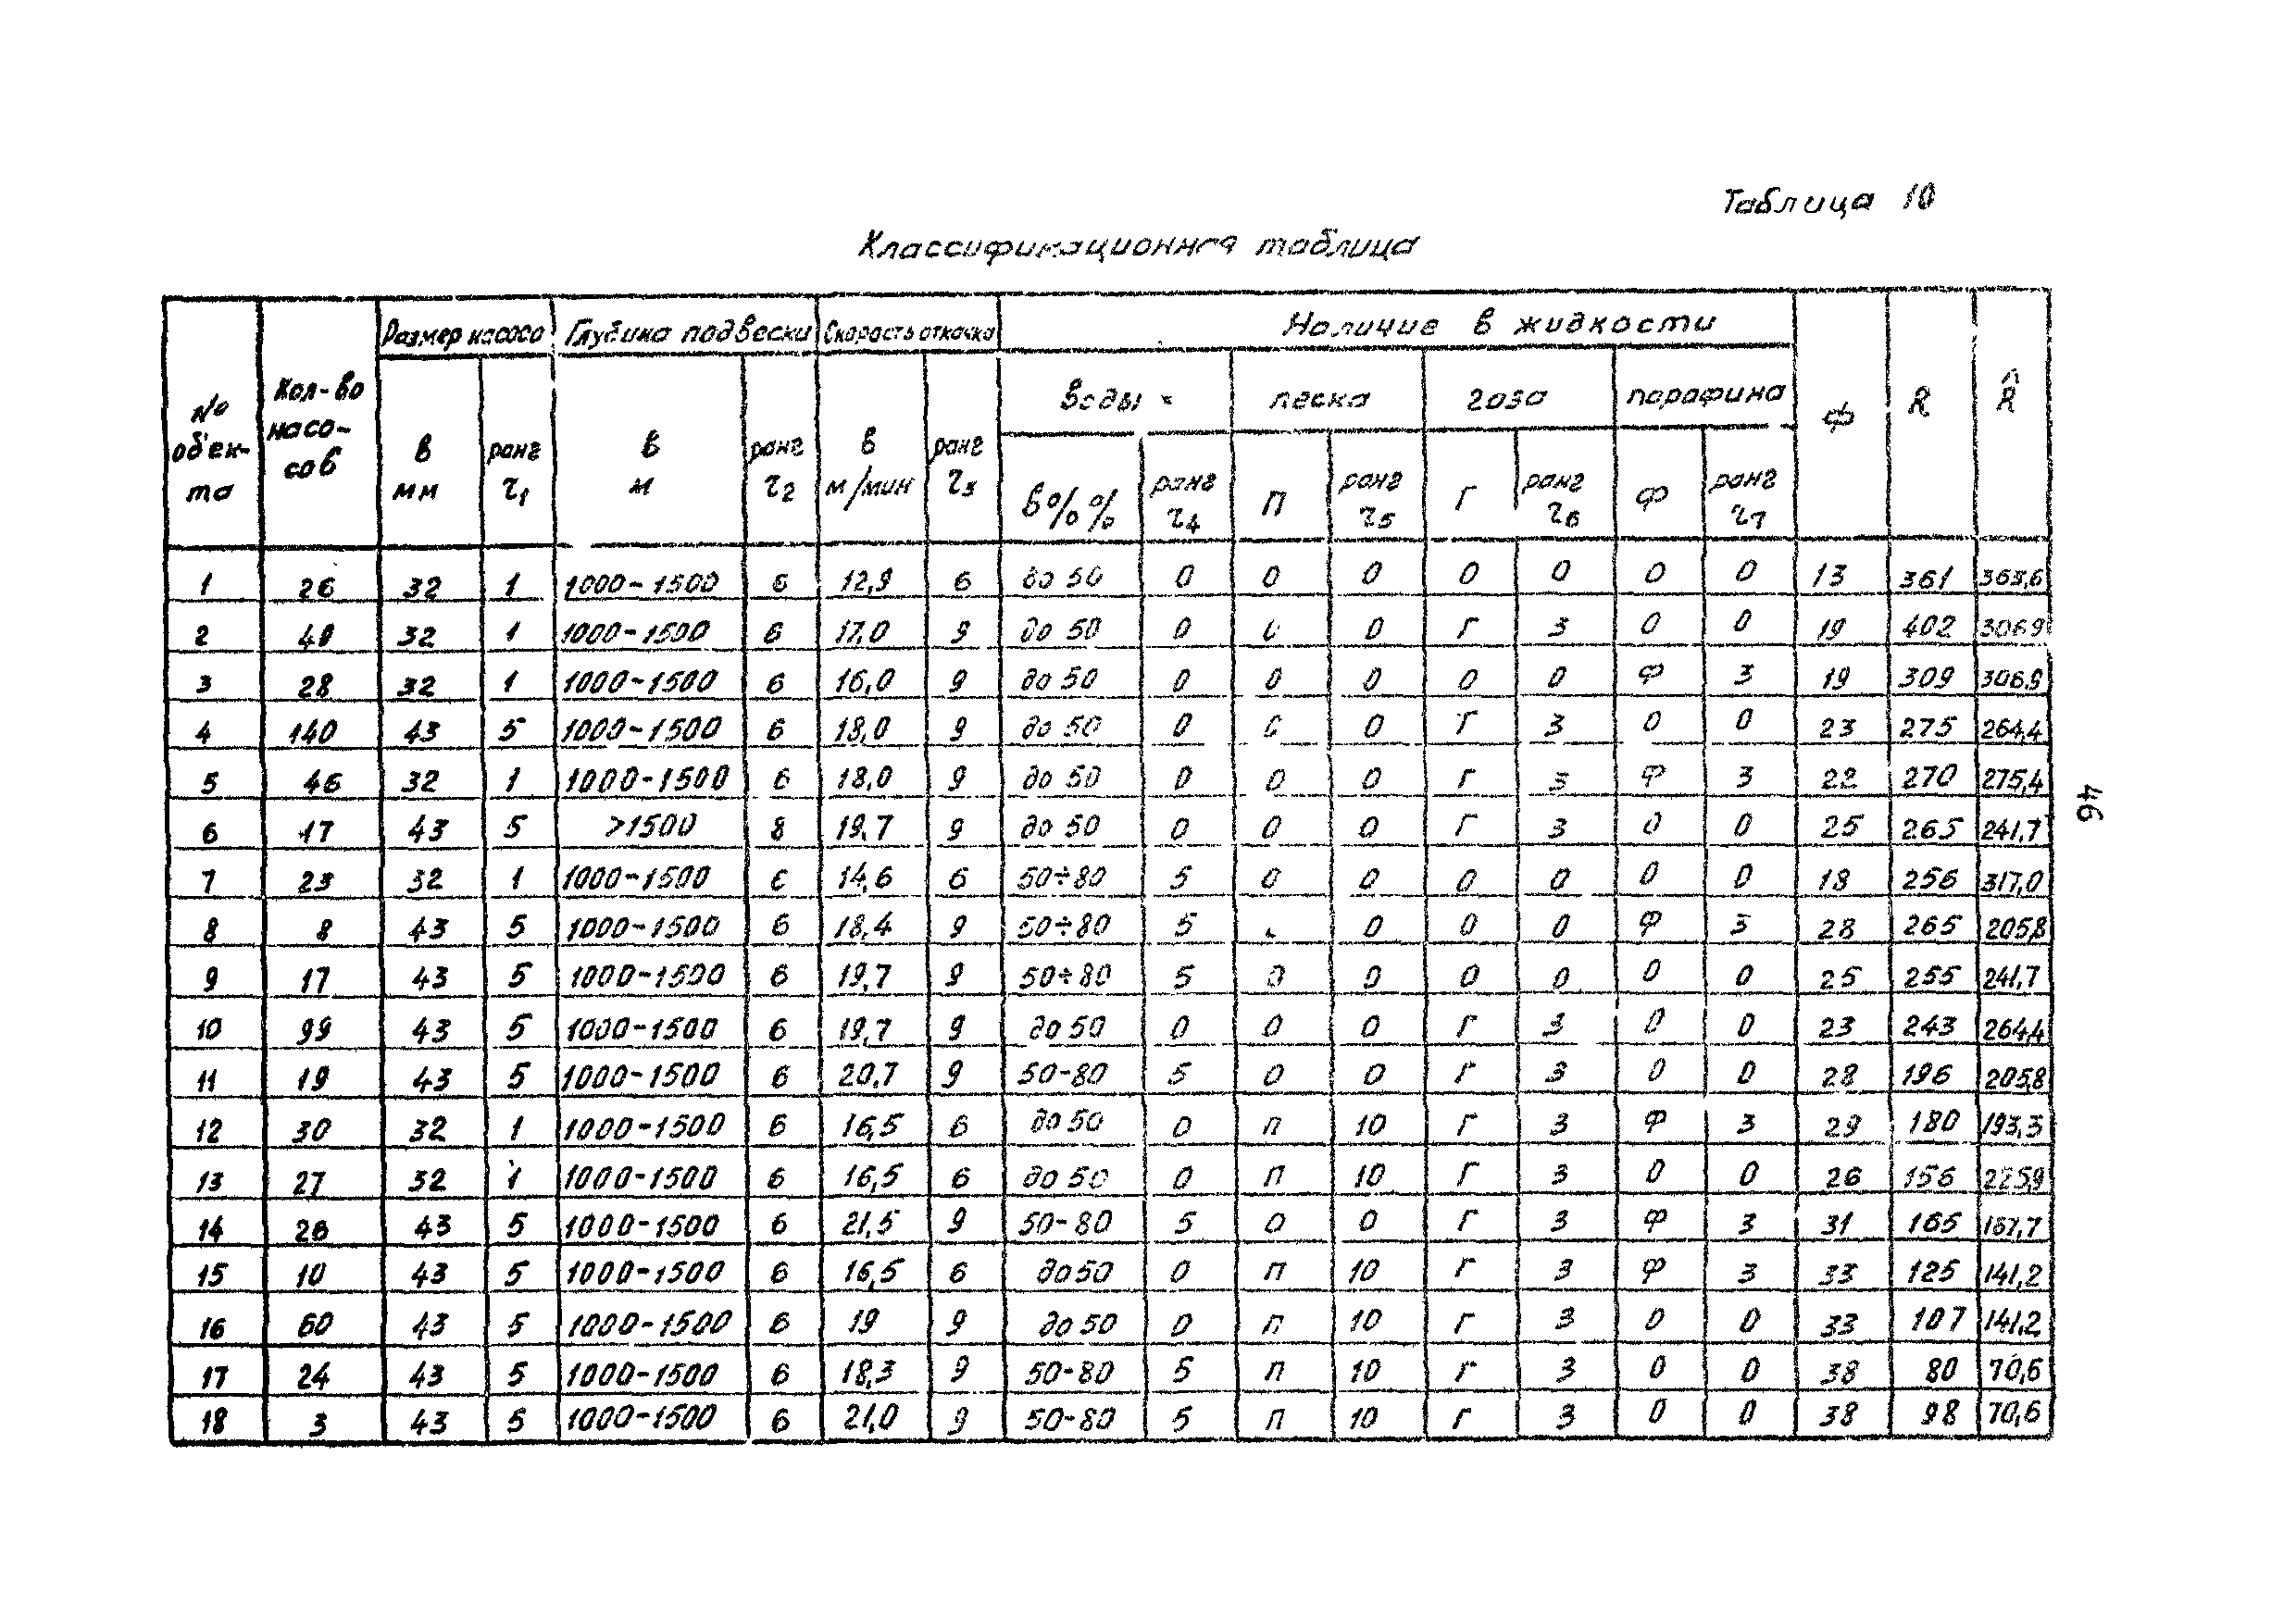 Таблица 10
Классификационная таблица
№ об'ек-та Кол-во насо-сов Размер насоса Глубина подвески Скорость откачка Наличие в жидкости Ф R R̂
воды песка газа парафина
в мм ранг τ1 в м ранг τ2 в м/мин ранг τ3 в%% ранг τ4 П ранг τ5 Г ранг τ6 Ф ранг τ7
1 26 32 1 1000-1500 6 12,9 6 до 50 0 0 0 0 0 0 0 13 361 363,6
2 32 1 1000-1500 6 17,0 9 до 50 0 0 Г 3 0 0 19 402 306,9
3 28 32 1 1000-1500 6 16,0 9 до 50 0 0 0 0 0 Ф 3 19 309 306,9
4 140 43 5 1000-1500 6 18,0 9 до 50 0 0 Г 3 0 0 23 275 264,4
5 46 32 1 1000-1500 6 18,0 9 до 50 0 0 0 Г 3 Ф 3 22 270 275,4
6 17 43 5 >1500 8 19,7 9 до 50 0 0 0 Г 3 0 0 25 265 241,7
7 23 32 1 1000-1500 6 14,6 6 50÷80 5 0 0 0 0 0 0 18 256 317,0
8 8 43 5 1000-1500 6 18,4 9 50÷80 5 0 0 0 Ф 3 28 265 205,8
9 17 43 5 1000-1500 6 19,7 9 50÷80 5 0 0 0 0 0 0 25 255 241,7
10 99 43 5 1000-1500 6 19,7 9 до 50 0 0 0 Г 3 0 0 23 243 264,4
11 19 43 5 1000-1500 6 20,7 9 50-80 5 0 0 Г 3 0 0 28 196 205,8
12 30 32 1 1000-1500 6 16,5 6 до 50 0 П 10 Г 3 Ф 3 29 180 193,3
13 27 32 1 1000-1500 6 16,5 6 до 50 0 П 10 Г 3 0 0 26 156 225,9
14 26 43 5 1000-1500 6 21,5 9 50-80 5 0 0 Г 3 Ф 3 31 165 167,7
15 10 43 5 1000-1500 6 16,5 6 до 50 0 П 10 Г 3 Ф 3 33 125 141,2
16 60 43 5 1000-1500 6 19 9 до 50 0 П 10 Г 3 0 0 33 107 141,2
17 24 43 5 1000-1500 6 18,3 9 50-80 5 П 10 Г 3 0 0 38 80 70,6
18 3 43 5 1000-1500 6 21,0 9 50-80 5 П 10 Г 3 0 0 38 98 70,6
46